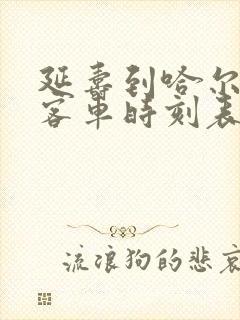 延寿到哈尔
客車時刻表
流浪狗的悲哀